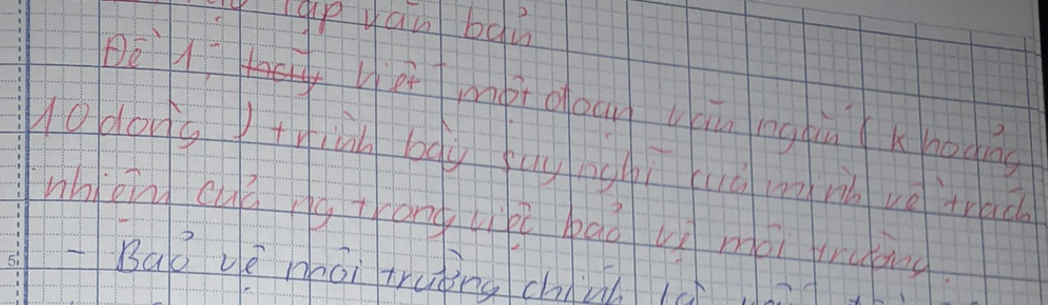 lập văn bản
Đề 1: hãy viết một đoạn văn ngắn ( khoảng
10 dòng ) trình bày suy nghĩ của mình về trách
nhiệm của ng trong việc bảo vệ môi trường
- Bảo vệ môi trường chính là